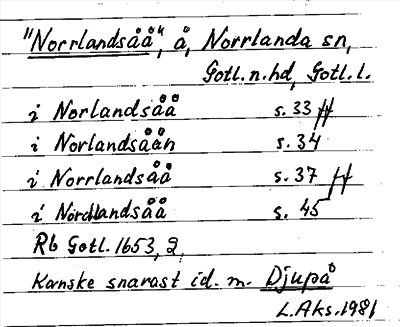 "Norrlandsåå", å, Norrlanda sn,
Gotl.n.hd, Gotl.l.
i Norlandsåå s. 33
i Norlandsåån s. 34
i Norrlandsåå s. 37
i Nordlandsåå s. 45
Rb Gotl. 1653, 2,
Kanske snarast id. m. Djupå
L.Aks. 1981